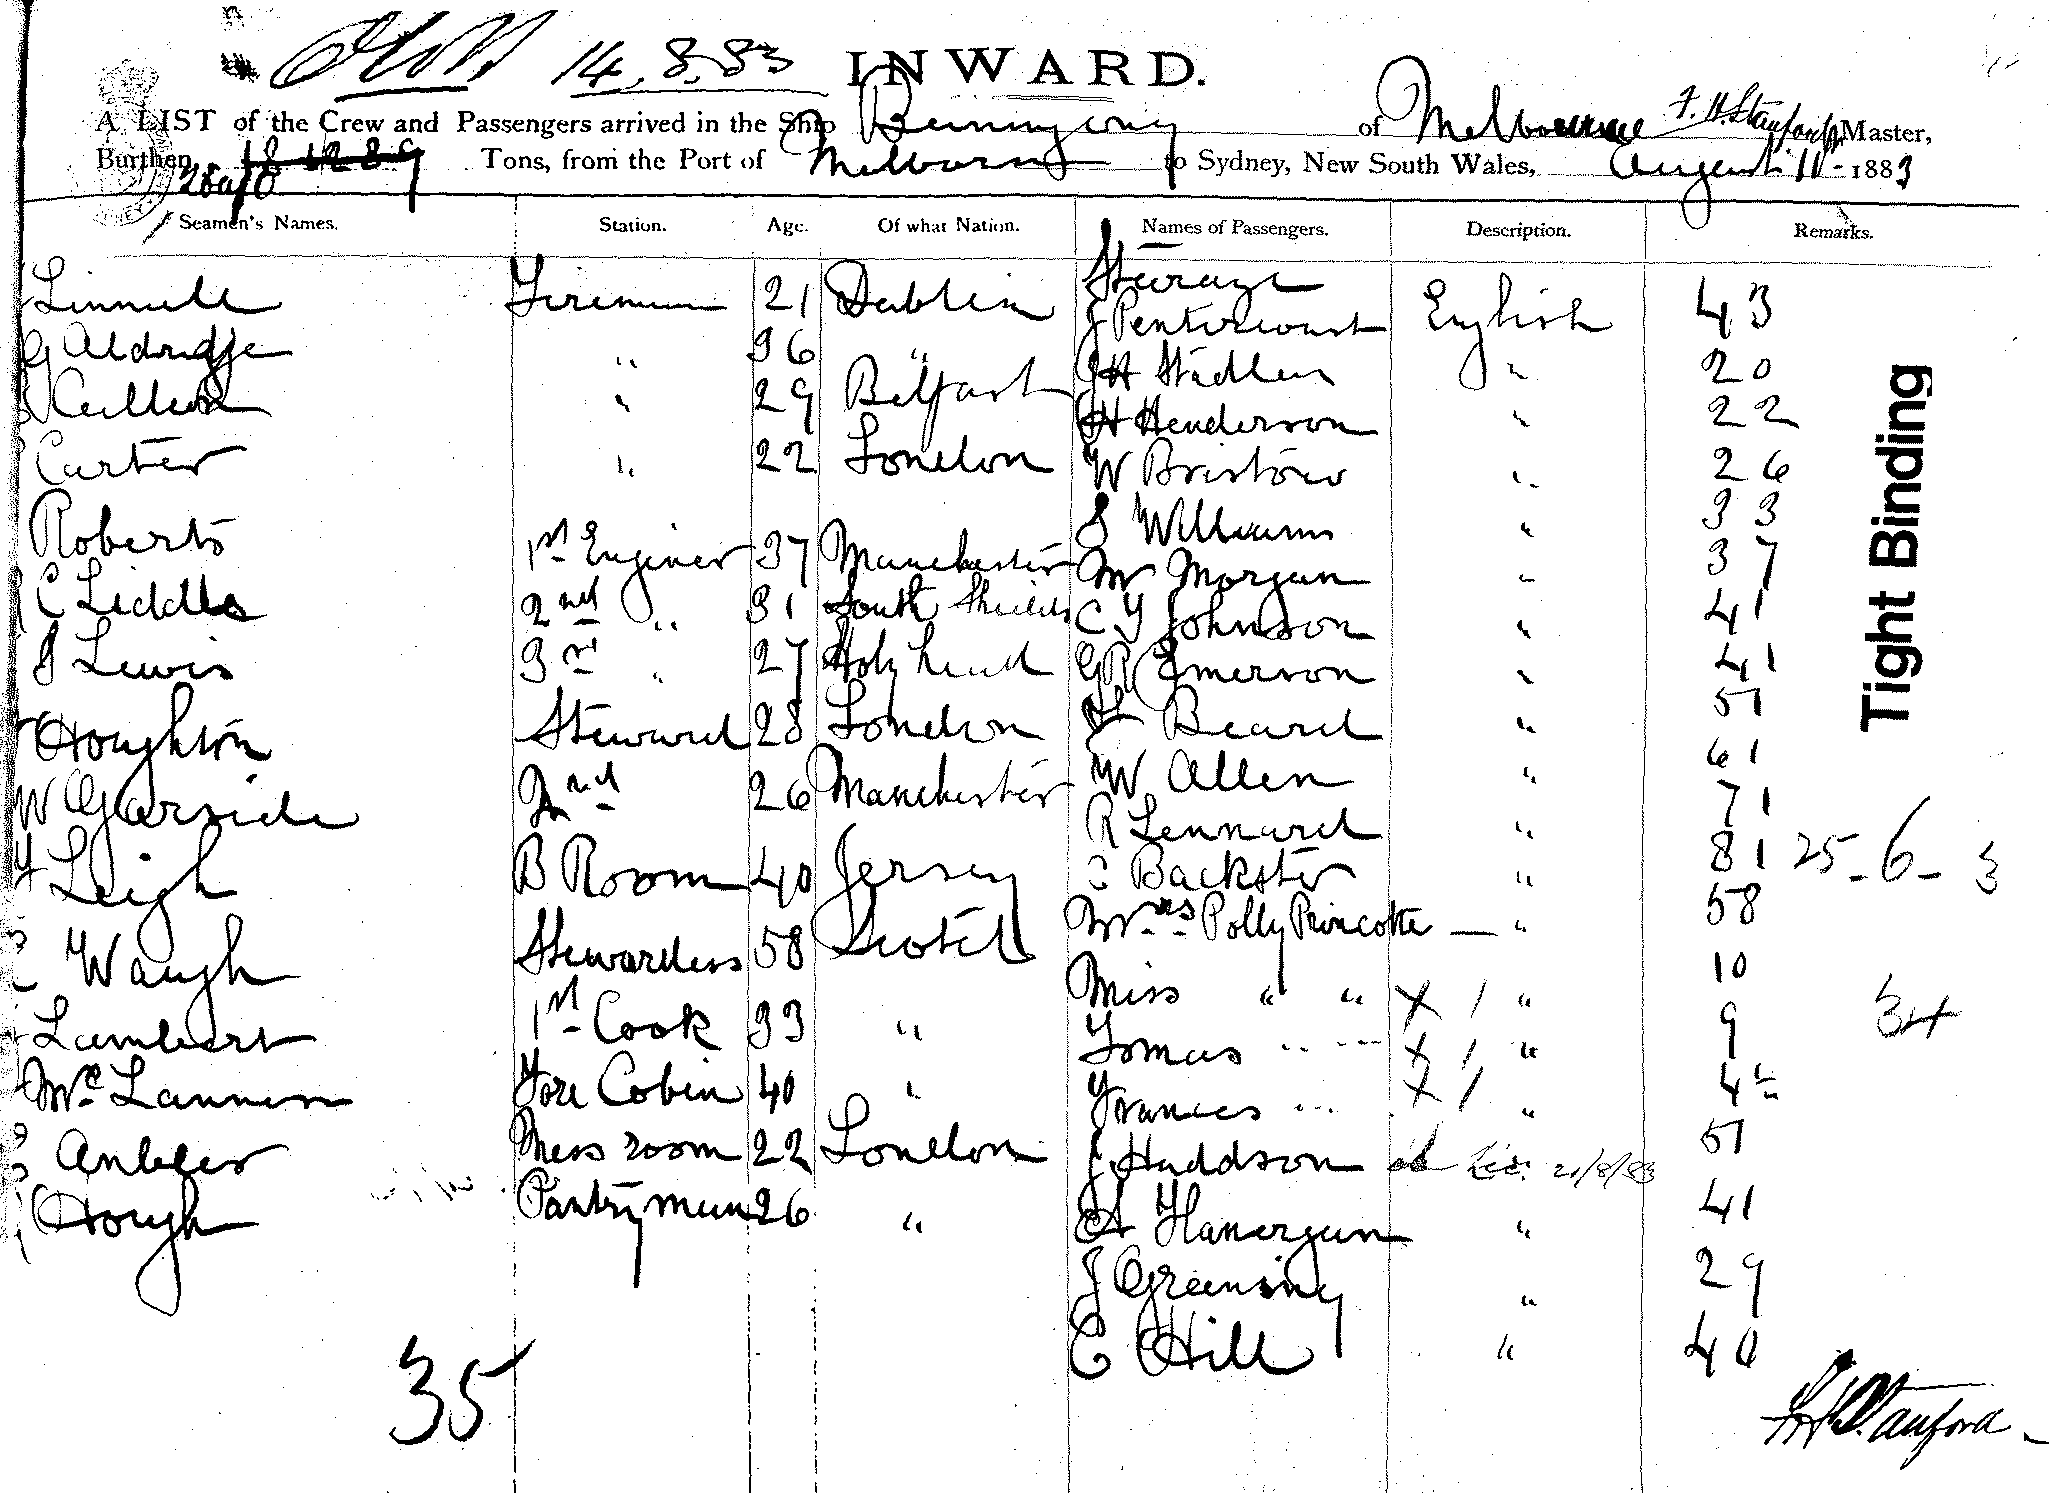 14.8.83 INWARD.
A LIST of the Crew and Passengers arrived in the Ship Buninyong of Melbourne F. H. Stanford Master,
Burthen Tons, from the Port of Melbourne to Sydney, New South Wales, August 11 - 1883
Seamen's Names. Station. Age. Of what Nation. Names of Passengers. Description. Remarks.
Steerage
Fireman 21 Dublin J Pentecoust English 43
G Aldridge " 36 " J H Stadlen " 20
Cullen " 29 Belfast H Henderson " 22
Carter " 22 London W Bristow " 26
Roberts 1st Enginer 37 Manchester S Williams " 33
C Liddle 2nd " 31 South Shields W Morgan " 37
J Lewis 3rd " 27 Holy head C Y Johnson " 41
Houghton Steward 28 London G R Emerson " 41
W Garside 2nd 26 Manchester H Beard " 51
Leigh B Room 40 Jersey W Allen " 61
Waugh Stewardess 58 Scotch R Lennard " 71
Lambert 1st Cook 33 " Backster " 81 25-6-3
Mc Lannen Fore Cabin 40 " Mrs Polly Princotte — " 58
Ambler Mess room 22 London Miss " " x 1 " 10
Hough Pantry man 26 " Tomas " " x 1 " 9 34
Frances " x 1 " 4
J Huddson 20/8/83 51
A Flanergan " 41
J Greensing " 29
C Hill " 40
35
F H Stanford
Tight Binding